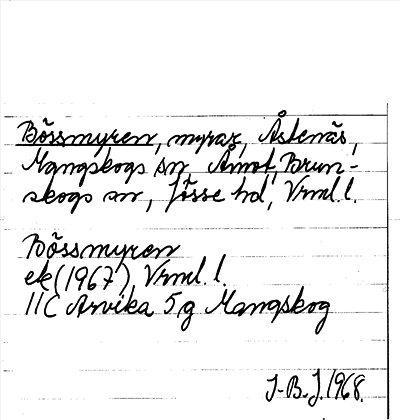 Bössmyren, myrar, Åstenäs,
Mangskogs sn, Åmot, Brun-
skogs sn, Jösse hd, Vrml. l.
Bössmyren
ek (1967), Vrml. l.
11C Arvika 5g Mangskog
J-B. J. 1968.